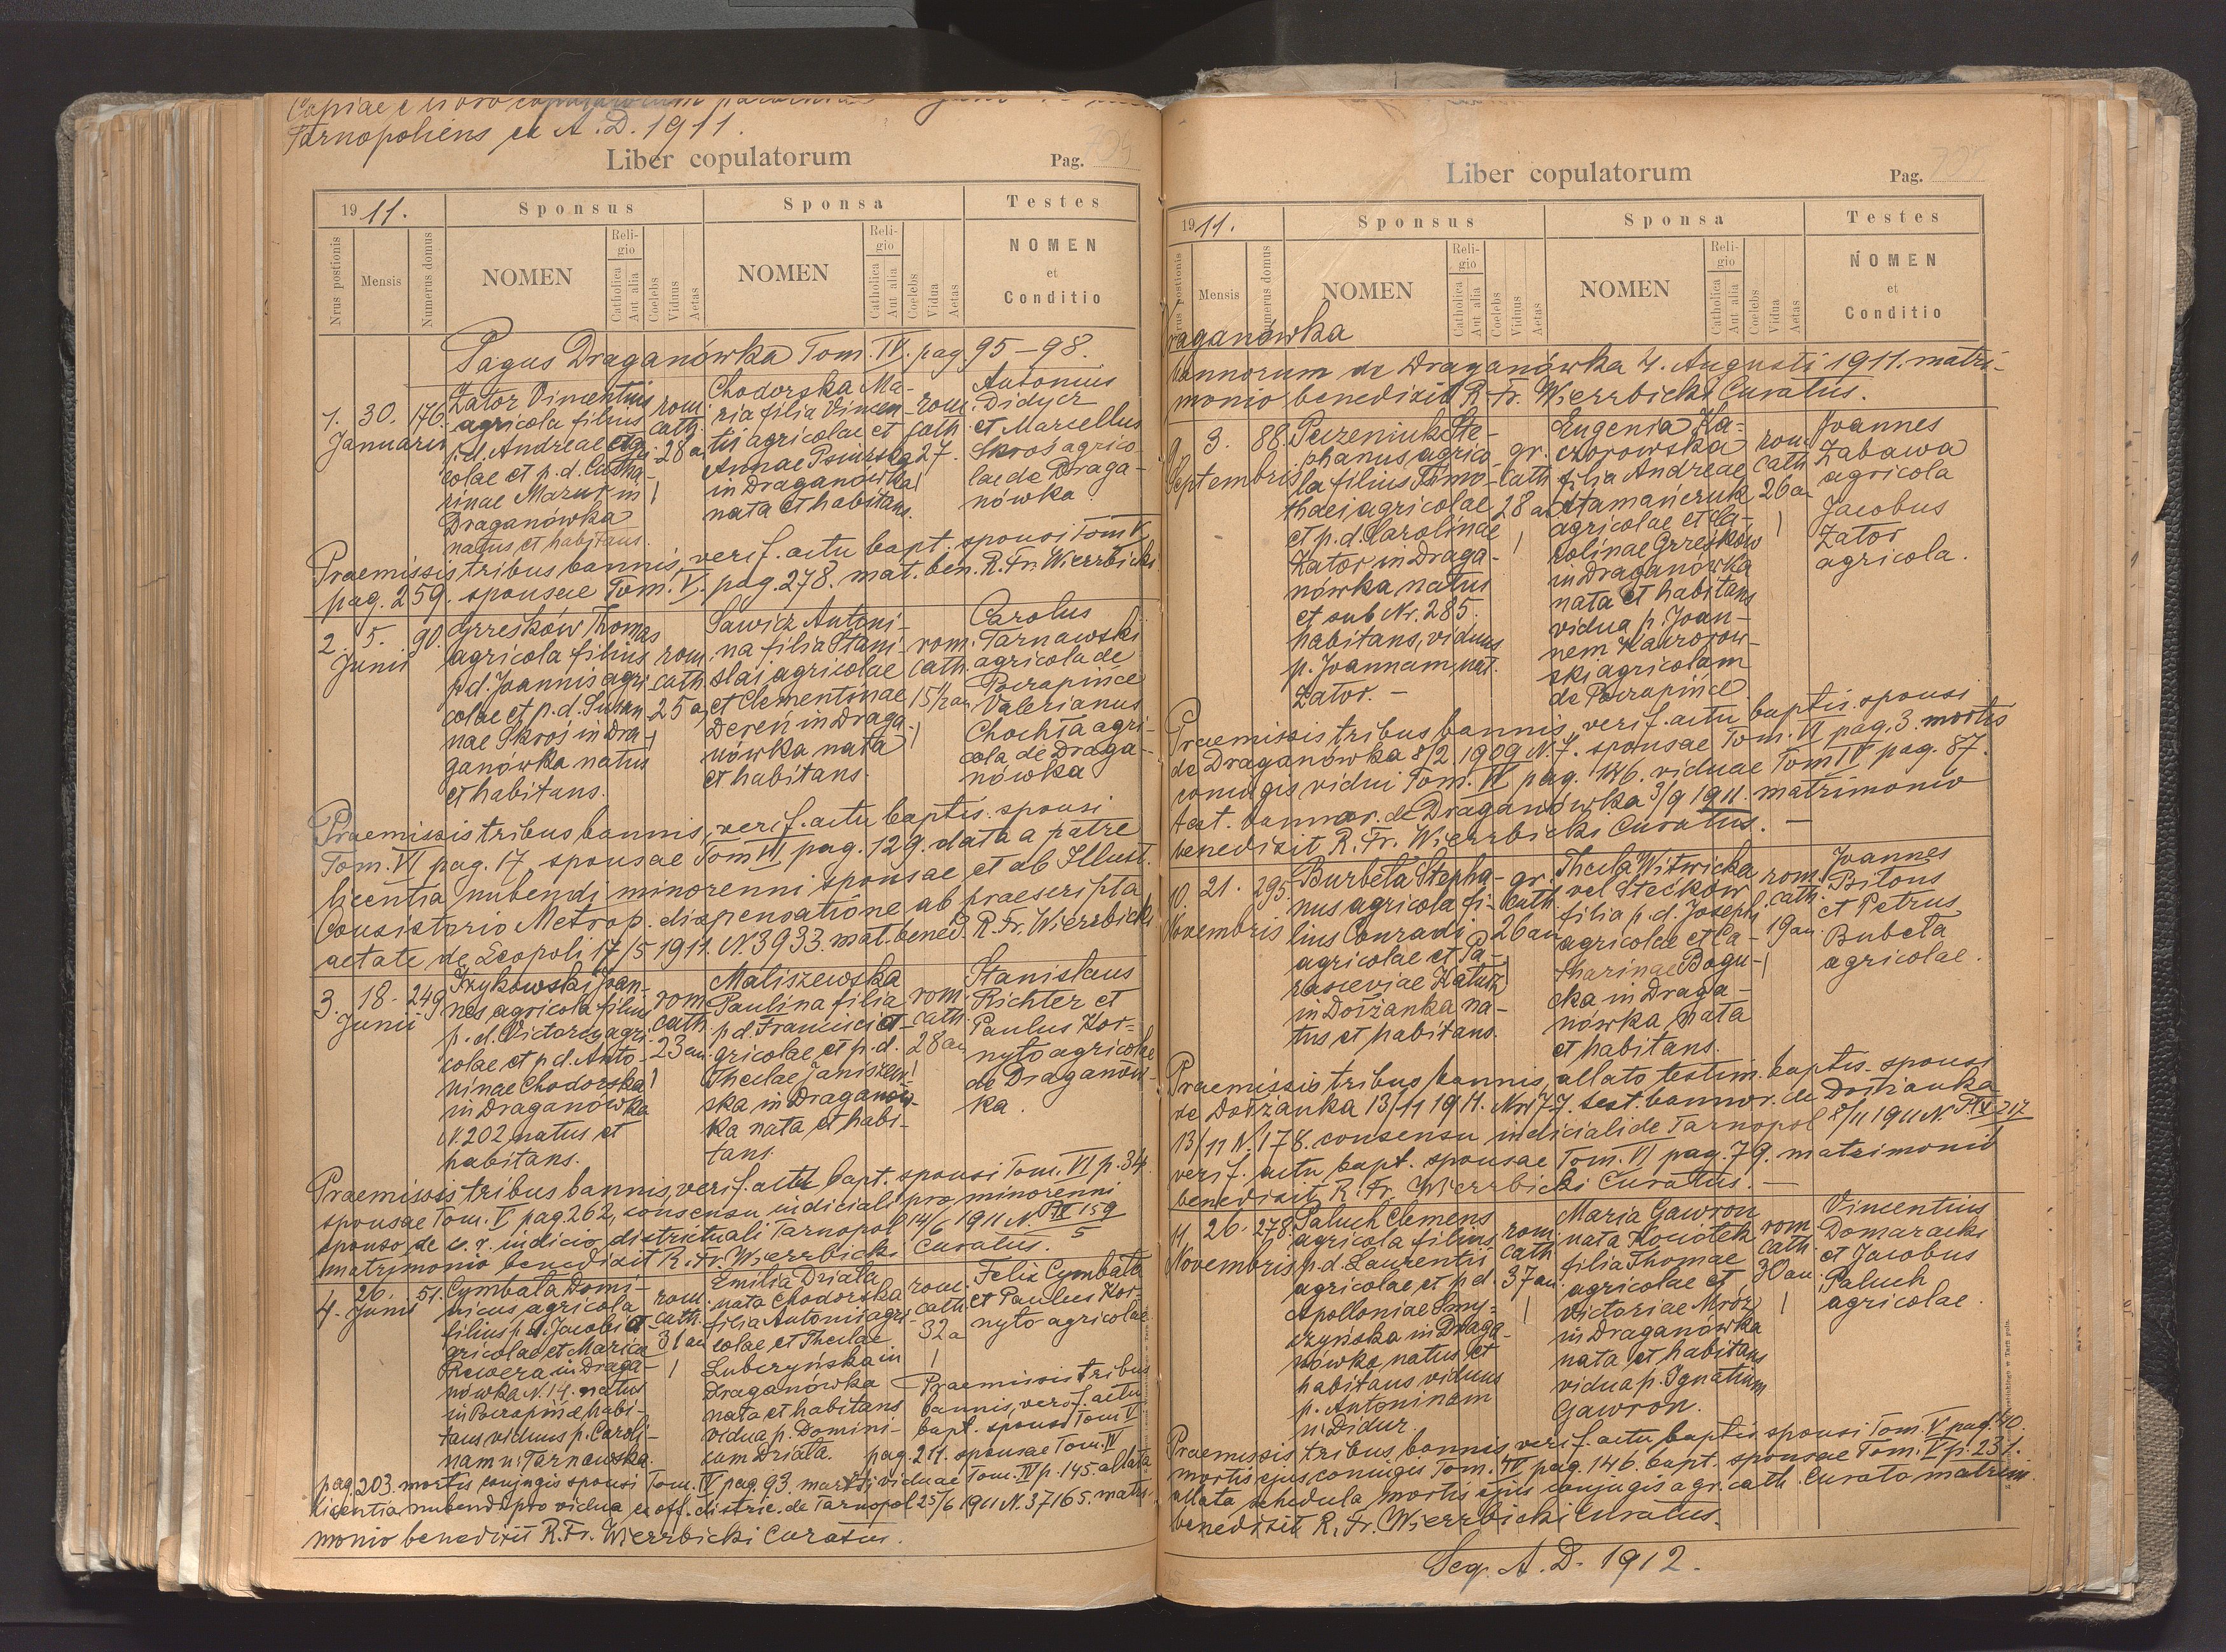 Tarnopoliens ex A.D. 1911.
Liber copulatorum Pag.
1911. Sponsus Sponsa Testes
Nrus postionis Mensis Numerus domus NOMEN Religio Catholica Aut alia Coelebs Viduus Aetas NOMEN Religio Catholica Aut alia Coelebs Vidua Aetas NOMEN et Conditio
Pagus Draganówka Tom. IV. pag. 95-98.
1. 30. Januarii 176.
Zator Vincentius
agricola filius
p.d. Andreae agri-
colae et p.d. Catha-
rinae Mazur in
Draganówka
natus et habitans.
rom. cath. 28 a. 1
Chodorska Ma-
ria filia Vincen-
tii agricolae et
Annae Psiurska
in Draganówka
nata et habitans.
rom. cath. 27. 1
Antonius
Didycz
et Marcellus
Skroś agrico-
lae de Draga-
nówka
Praemissis tribus bannis, verif. actu bapt. sponsi Tom V
pag. 259. sponsae Tom. V. pag. 278. mat. ben. R. Fr. Wierzbicki
2. 5. Junii 90.
Grzesków Thomas
agricola filius
p.d. Joannis agri-
colae et p.d. Susan-
nae Skroś in Dra-
ganówka natus
et habitans.
rom. cath. 25 a. 1
Sawicz Antoni-
na filia Stani-
slai agricolae
et Clementinae
Dereń in Draga-
nówka nata
et habitans.
rom. cath. 15 1/2 an. 1
Carolus
Tarnawski
agricola de
Poczapińce
Valerianus
Chochła agri-
cola de Draga-
nówka
Praemissis tribus bannis, verif. actu baptis. sponsi
Tom. VI pag. 17, sponsae Tom VI pag. 129. data a patre
licentia nubendi minorenni sponsae et ab Illust.
Consistorio Metrop. dispensatione ab praescripta
aetate de Leopoli 17/5 1911. N 3933. mat. bened. R. Fr. Wierzbicki
3. 18. Junii 249
Fzykowski Joan-
nes agricola filius
p.d. Victoris agri-
colae et p.d. Anto-
ninae Chodorska
in Draganówka
N. 202 natus et
habitans.
rom. cath. 23 an. 1
Maliszewska
Paulina filia
p.d. Francisci a-
gricolae et p.d.
Theclae Janiszew-
ska in Draganów-
ka nata et habi-
tans.
rom. cath. 28 an. 1
Stanislaus
Richter et
Paulus Kor-
nyło agricolae
de Draganów-
ka.
Praemissis tribus bannis, verif. actu bapt. sponsi Tom. VI p. 34.
sponsae Tom. V pag. 262, consensu iudiciali pro minorenni
sponso de c. r. iudicio districtuali Tarnopol 14/6 1911 N. P IX 159/5
matrimonio benedixit R. Fr. Wierzbicki Curatus.
4. 26. Junii 51.
Cymbała Domi-
nicus agricola
filius p.d. Jacobi a-
gricolae et Mariae
Rewera in Draga-
nówka N. 14. natus
in Poczapińce habi-
tans viduus p. Caroli-
nam n. Tarnawska.
rom. cath. 31 an 1
Emilia Działa
nata Chodorska
filia Antonii agri-
colae et Theclae
Lubczyńska in
Draganówka
nata et habitans
vidua p. Domini-
cum Działa.
rom. cath. 32 a 1
Felix Cymbała
et Paulus Kor-
nyło agricolae
Praemissis tribus
bannis, verif. actu
bapt. sponsi Tom V
pag. 211. sponsae Tom. IV
pag. 203. mortis conjugis sponsi Tom. IV pag. 93. mariti viduae Tom. IV p. 145. allata
licentia nubendi pro vidua ex off. distric. de Tarnopol 25/6 1911 N. 37165. matri-
monio benedixit R. Fr. Wierzbicki Curatus.
Liber copulatorum Pag.
1911. Sponsus Sponsa Testes
Mensis NOMEN Religio Catholica Aut alia Coelebs Viduus Aetas NOMEN Religio Catholica Aut alia Coelebs Vidua Aetas NOMEN et Conditio
raganówka
bannorum de Draganówka 4. Augusti 1911. matri-
monio benedixit R. Fr. Wierzbicki Curatus.
9. 3. Septembris 88.
Peczeniuk Ste-
phanus agrico-
la filius Timo-
thaei agricolae
et p.d. Carolinae
Zator in Draga-
nówka natus
et sub Nr. 285.
habitans, viduus
p. Joannam nat.
Zator. -
gr. cath 28 an 1
Eugenia Ka-
czorowska
filia Andreae
Atamańczuk
agricolae et Ca-
rolinae Grzesków
in Draganówka
nata et habitans
vidua p. Joan-
nem Kaczorow-
ski agricolam
de Poczapińce
rom. cath. 26 a. 1
Joannes
Zabawa
agricola
Jacobus
Zator
agricola.
Praemissis tribus bannis, verif. actu baptis. sponsi
de Draganówka 8/2 1909 N. 7. sponsae Tom. VI pag. 3. mortis
coniugis vidui Tom. IV pag. 146. viduae Tom IV pag. 87.
test. bannor. de Draganówka 3/9 1911. matrimonio
benedixit R. Fr. Wierzbicki Curatus. -
10. 21. Novembris 295
Burbela Stepha-
nus agricola fi-
lius Conradi
agricolae et Pa-
rasceviae Hałusz
in Dołżanka na-
tus et habitans.
gr. cath. 26 an 1
Thecla Witwicka
vel Steckow
filia p.d. Josephi
agricolae et Ca-
tharinae Bogu-
cka in Draga-
nówka nata
et habitans.
rom. cath. 19 an. 1
Joannes
Bilous
et Petrus
Bubela
agricolae.
Praemissis tribus bannis, allato testim. baptis. sponsi
de Dołżanka 13/11 1911. Nr 77. test. bannor. de Dołżanka
13/11 N. 178. consensu iudiciali de Tarnopol 8/11 1911 N. P. IX 217
verif. actu bapt. sponsae Tom. VI pag. 79. matrimonio
benedixit R. Fr. Wierzbicki Curatus. -
11. 26. Novembris 278
Paluch Clemens
agricola filius
p.d. Laurentii
agricolae et p.d.
Apolloniae Smy-
czyńska in Draga-
nówka natus et
habitans viduus
p. Antoninam
n. Didur
rom. cath. 37 an. 1
Maria Gawron
nata Kociołek
filia Thomae
agricolae et
Victoriae Mróz
in Draganówka
nata et habitans
vidua p. Ignatium
Gawron.
rom. cath. 30 an. 1
Vincentius
Domaracki
et Jacobus
Paluch
agricolae.
Praemissis tribus bannis, verif. actu baptis. sponsi Tom. V pag. 40.
mortis ejus coniugis Tom. IV pag. 146. bapt. sponsae Tom. V p. 231.
allata schedula mortis ejus conjugis a gr. cath. Curato matrim.
benedixit R. Fr. Wierzbicki Curatus.
Seq. A. D. 1912.